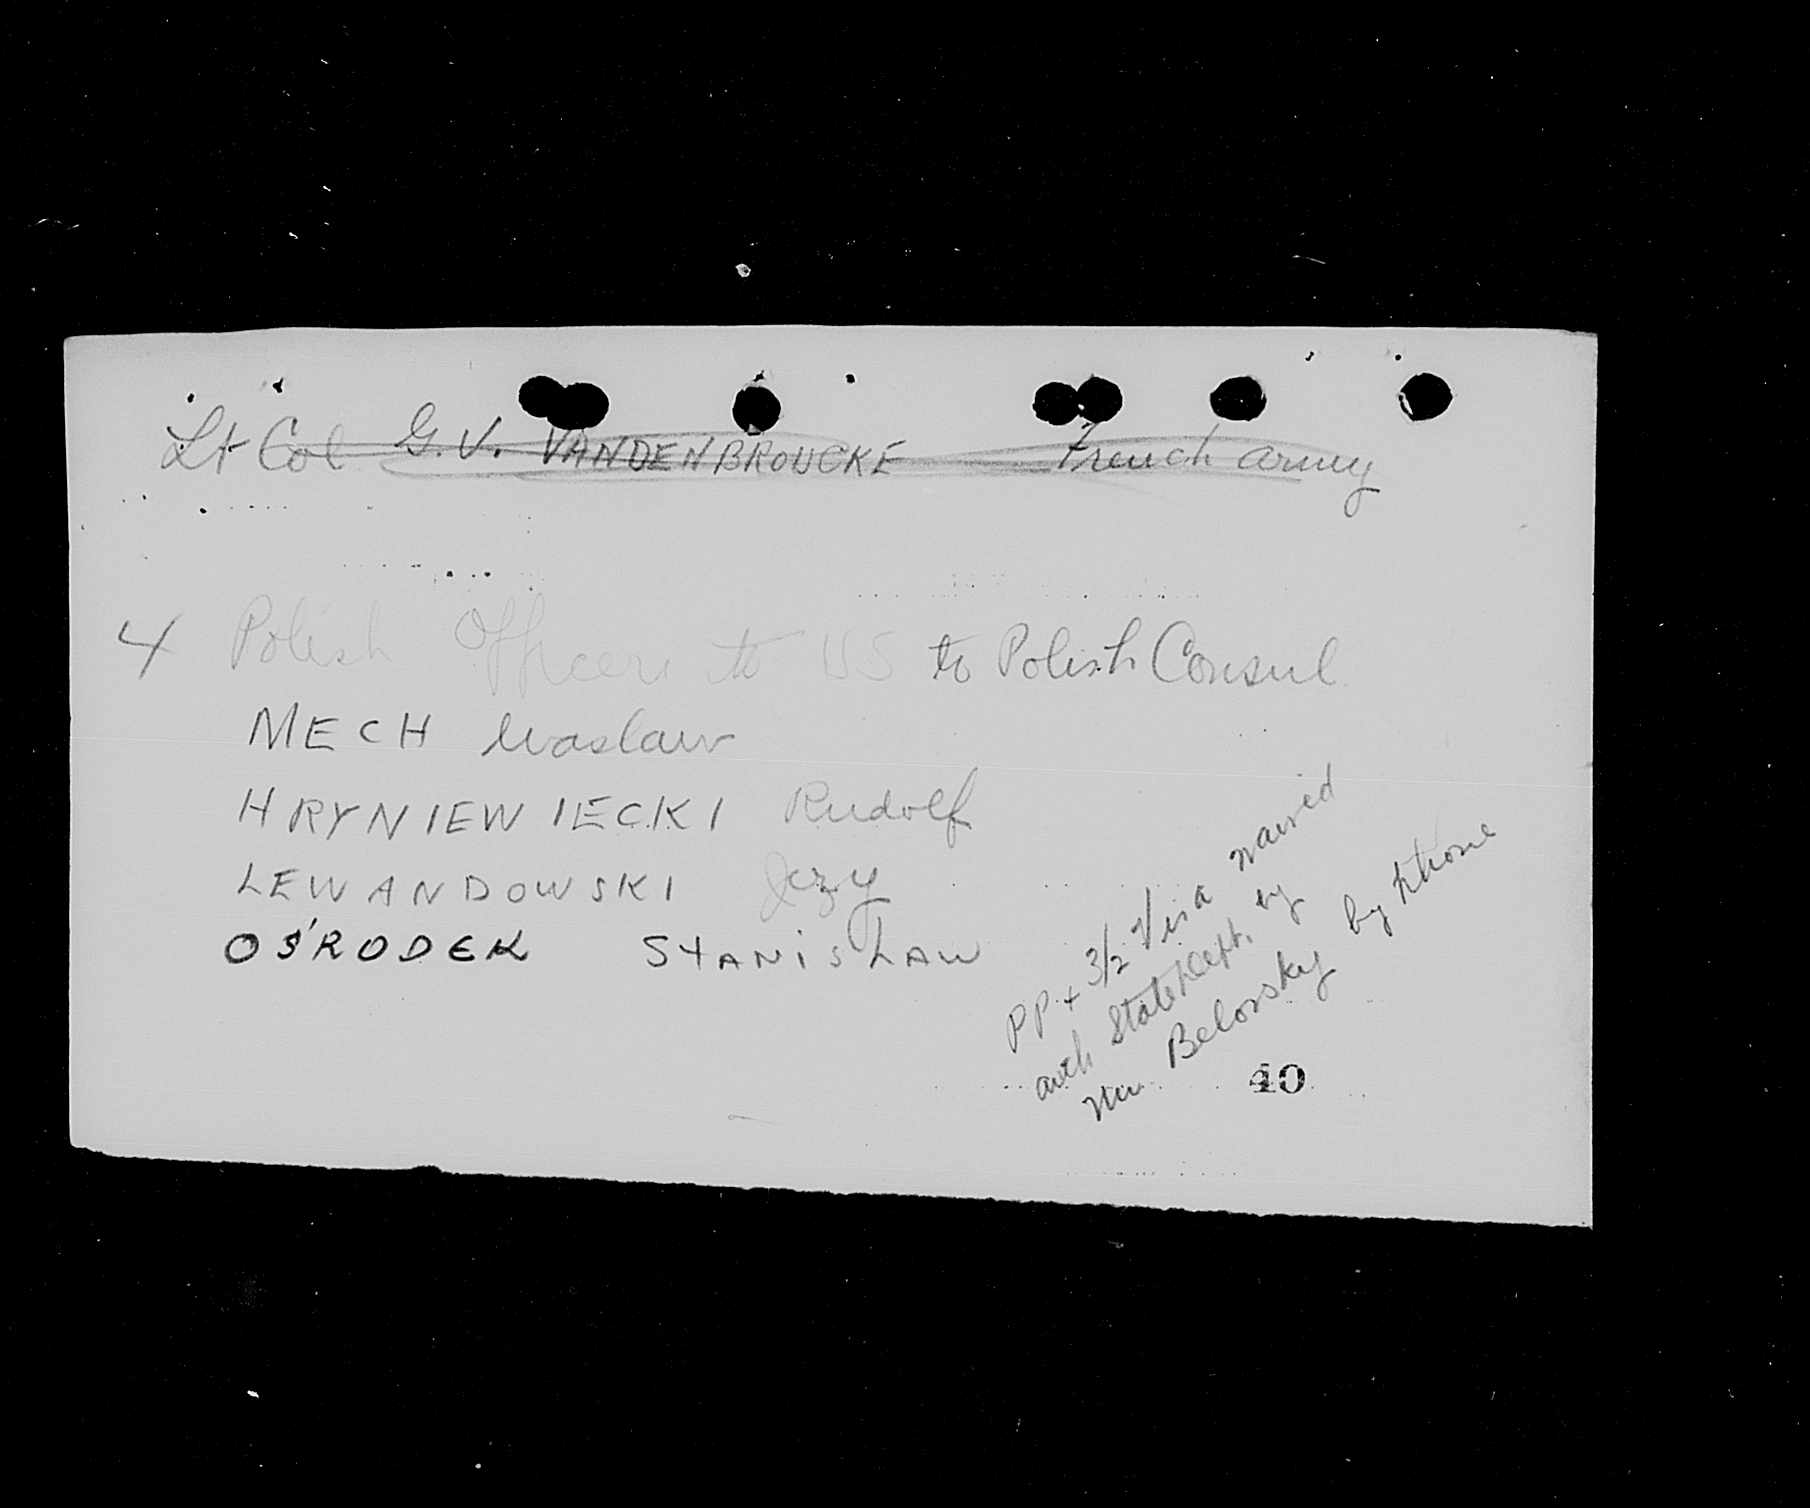 Lt Col G.V. VANDENBROUCKE French army
4 Polish Officers to US to Polish Consul
MECH Waslaw
HRYNIEWIECKI Rudolf
LEWANDOWSKI Jezy
OŚRODEK STANISŁAW
PP + 3/2 Visa waived
auth State Dept. by
Mr. Belovsky by phone
40